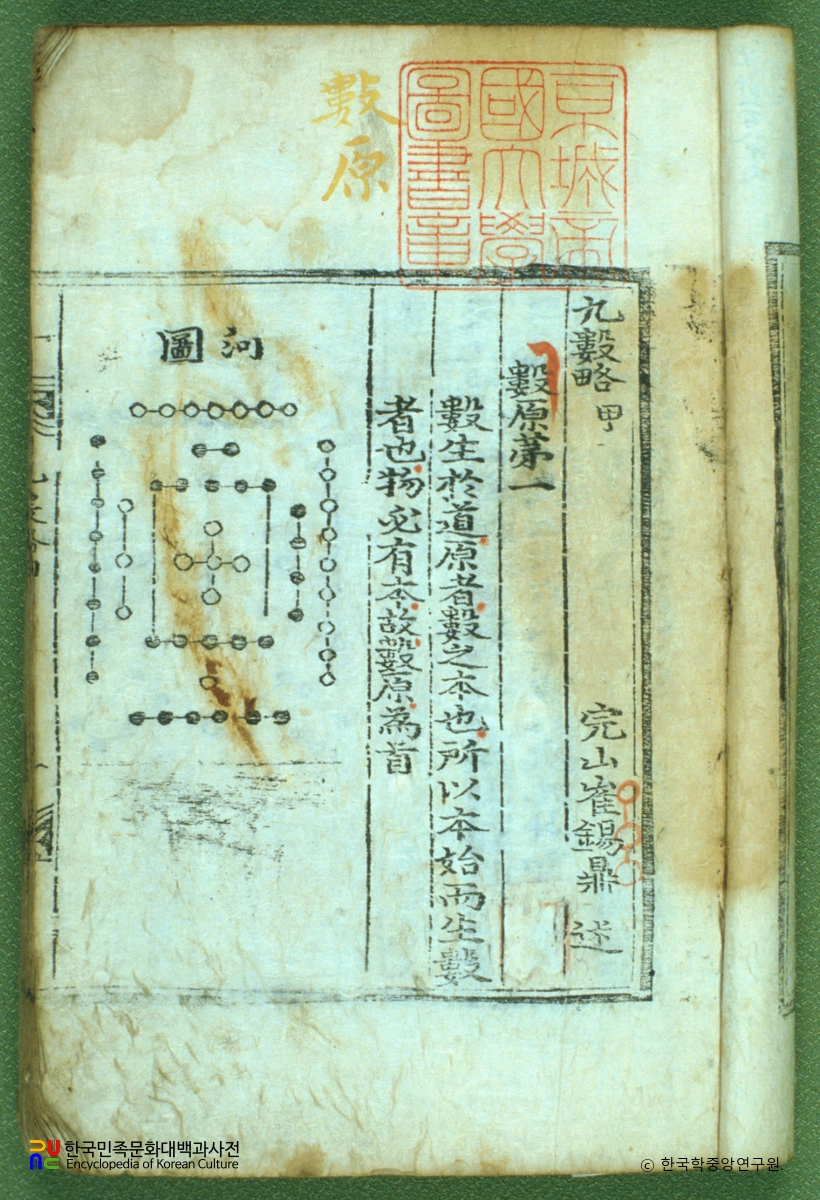 數原
京城帝
國大學
圖書章
九數略 甲
完山崔錫鼎 述
數原第一
數生於道原者數之本也所以本始而生數
者也物必有本故數原為首
河圖
한국민족문화대백과사전
Encyclopedia of Korean Culture
© 한국학중앙연구원